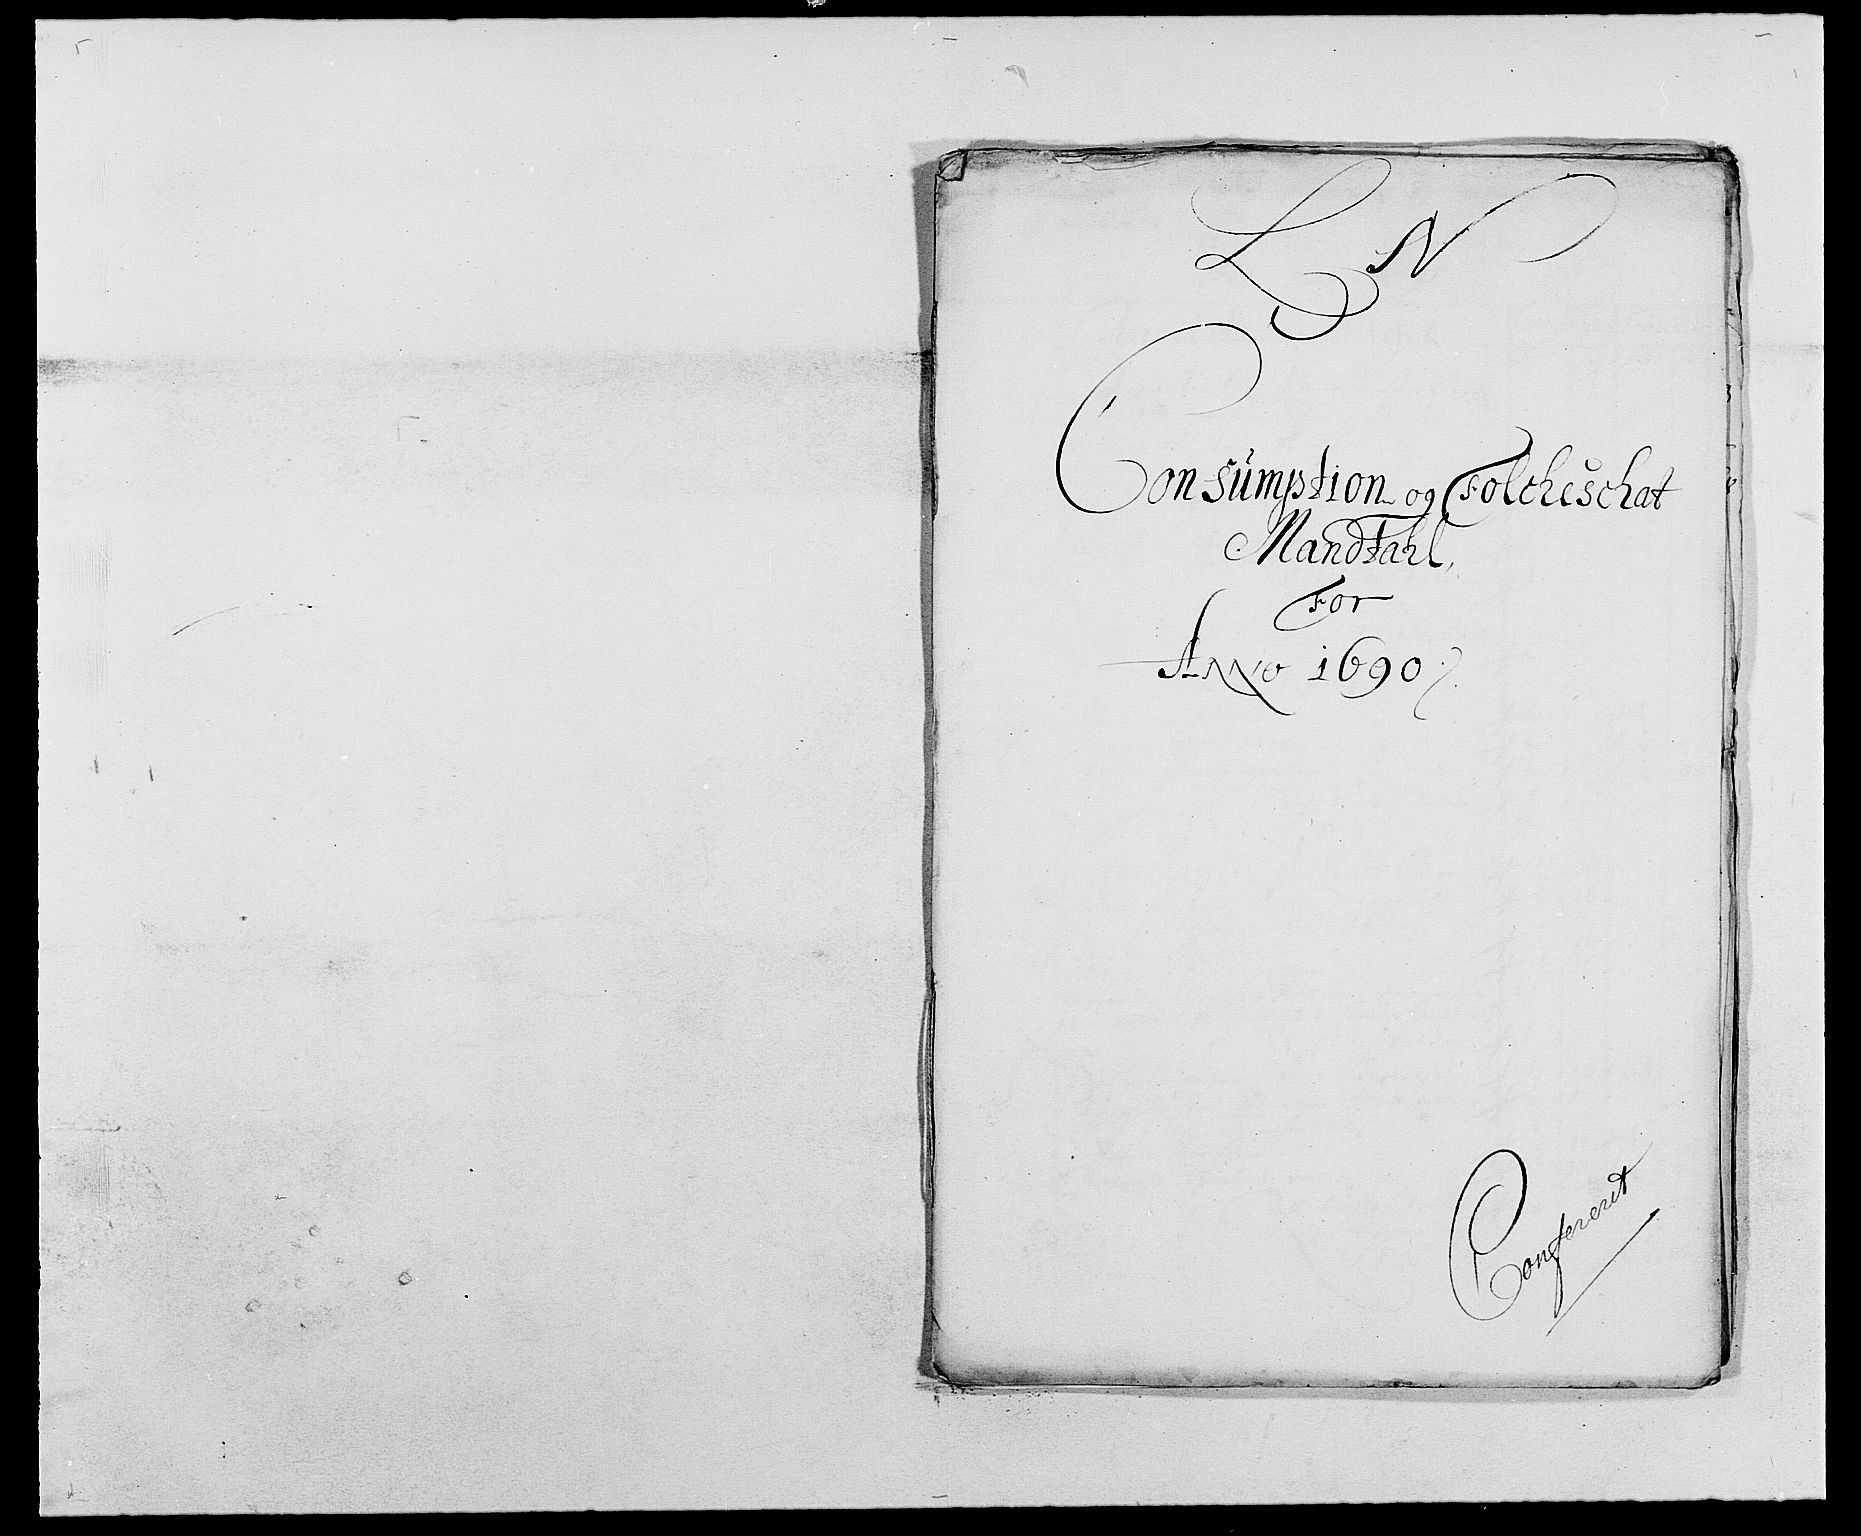 L N
Consumption og Folcheschat
Mandtahl,
For
Anno 1690
Confererit